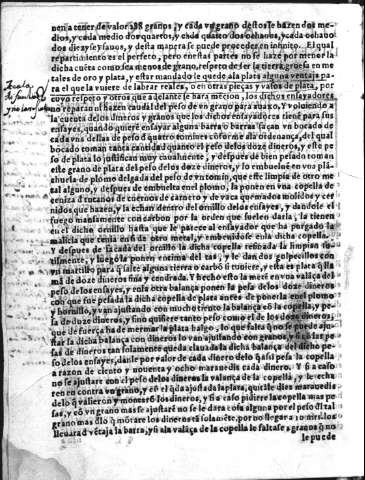 nen a tener de valor 288 granos, y cada vn grano destos se hazen dos me-
dios, y cada medio dos quartos, y cada quarto dos ochauos, y cada ochauo
dos diezyseysauos, y desta manera se puede proceder en infinito. El qual
repartimiento es el perfeto, pero en estas partes no se haze por menor la
dicha cuēta como sea menos de grano, respeto de ser la tierra gruesa en me
tales de oro y plata, y estar mandado le quede a la plata alguna ventaja pa-
ra el que la vuiere de labrar reales, o en otras pieças y vasos de plata, por
cuyo respeto y otros que adelante se hara mencion, los dichos ensayadores
no reparan ni hazen caudal del peso de vn grano para auaxo. Y voluiendo a
la cuenta de los dineros y granos que los dichos ensayadores tienē para sus
ensayes, quando quierē ensayar alguna barra o barras sacan vn bocado de
cada vna dellas de peso d quatro tomines cōforme a la ordenança, del qual
bocado toman tanta cantidad quanto el peso de los doze dineros, y este pe
so de plata lo justifican muy ygualmente, y despues de bien pesado toman
este grano de plata del peso de los doze dineros, y lo embueluē en vna plā-
chuela de plomo delgada del peso de vn tomin, que este limpia de otro me
tal alguno, y despues de embuelta en el plomo, la ponen en vna copella de
ceniza d tutanos de cuernos de carnero y de vaca quemados molidos y cer
nidos que hazen, y la echan dentro del ornillo de los ensayes, y dandole el
fuego mansamente con carbon por la orden que suelen darla, la tienen
en el dicho ornillo hasta que le parece al ensayador que ha purgado la
malicia que tenia assi de otro metal, y embeuidose en la dicha copella.
Y despues de sacada del ornillo la dicha copella resfriada la limpian su-
tilmente, y luego la ponen encima del tas, y le dan dos golpecillos con
vn martillo para q salte alguna tierra o carbō si tuuiere, y esta es plata q lla
mā de doze dineros fina y cendrada. Y hecho esto la metē en vna valāça del
peso de los ensayes, y en la otra balança ponen la pesa de los doze dineros
con que fue pesada la dicha copella de plata antes de ponerla en el plomo
y hornillo, y van ajustando con mucho tiento la balança cō la copella, y pe
sa de doze dineros, y sino quiere tanto peso como el de los doze dineros,
que de fuerça ha de mermar la plata halgo, lo que falta q no se puede aju-
star la dicha balança con dineros lo van ajustando con granos, y si cō las pe
sas de dineros tan solamente queda clauada la dicha balança del dicho pe-
so de los ensayes, danle por valor de cada dinero de lo q assi pesa la copella
a razon de ciento y nouenta y ocho marauedis cada dinero. Y si a caso
no se ajustare con el peso de los dineros la valança de la copella, y le echa
ren en contra vn grano, y cō el q da ajustada la plata, quitāle diez marauedis
delo q valieron y montarō los dineros, y si a caso pidiere la copella mas pe
sas, y cō vn grano mas se ajustarē no se le dara cosa alguna por el peso dl tal
grano mas dlo q mōtare los dineros tā solamēte, por no llegar a 10 mrs. los
lleuara d vētaja la barra, y si a la valāça de la copella le faltase 2 granos q no
le puede